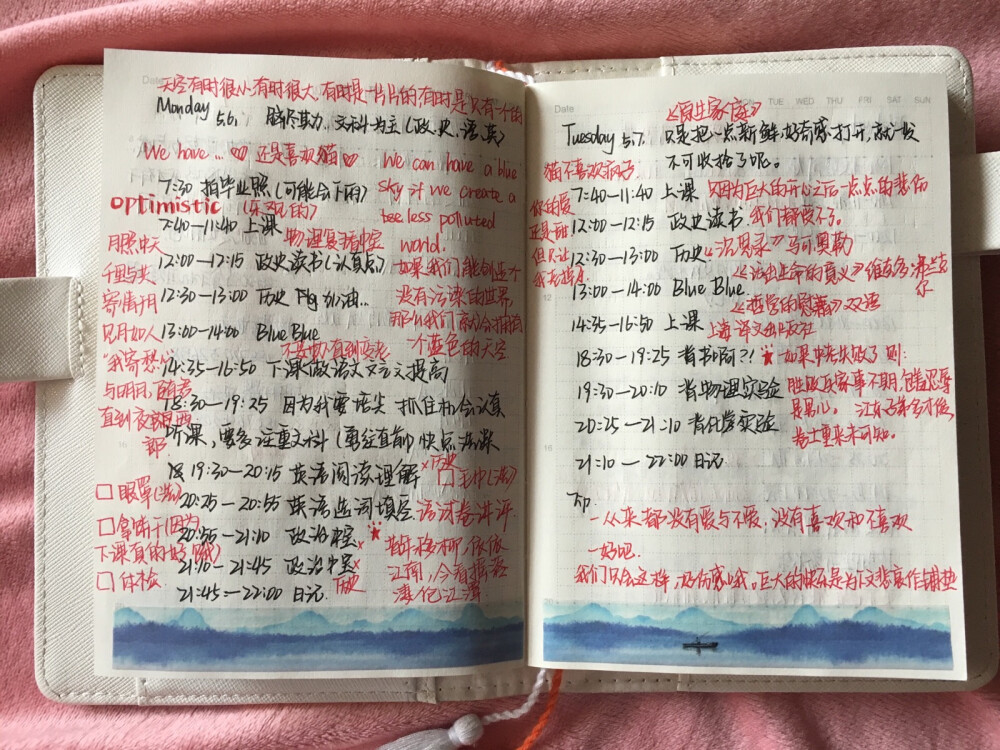 天空有时很小,有时很大,有时是一片片的有时是只有一个的
Monday 5.6. 脑尽其力. 文科为主(政.史.语.英)
We have … ♡ 还是喜欢猫 ♡
we can have a blue
sky if we create a
less polluted
world.
7:30 拍毕业照(可能会下雨)
optimistic (乐观的)
7:40—11:40 上课 物理复习
月照中天
千里与共
寄属明
月如人
"我寄愁心
与明月,随君
直到夜郎西
12:00—12:15 政史读书(认真点)
如果我们能创造一个
没有污染的世界,
那么我们就会拥有
一个蓝色的天空
12:30—13:00 历史 Fly 加油..
13:00—14:00 Blue Blue
14:35—16:50 下课做语文文言文提高
18:30—19:25 因为我要培尖 抓住机会认真
听课,要多注重文科(勇往直前)快点
18 19:30—20:15 英语阅读理解 × 历史
20:25—20:55 英语选词填空 语试卷讲评
20:55—21:10 政治
21:10—21:45 政治 × 历史
21:45—22:00 日记
□ 眼罩(洗)
□ 拿饼干(因为
下课真的好饿)
□ 体检
昔年移柳,依依
今看摇落
Date TUE WED THU FRI SAT SUN
《原生家庭》
Tuesday 5.7. 只是把一点新鲜,好奇感打开,就一发
不可收拾了呢。
猫不喜欢疯子
你的爱
还是
但只让
我
7:40—11:40 上课 只因为巨大的开心之后一点点的悲伤
12:00—12:15 政史读书 我们都受不了。
12:30—13:00 历史 《沉思录》马可奥勒
《活出生命的意义》维克多·弗兰克
尔
13:00—14:00 Blue Blue.
《哲学的慰藉》双语
14:35—16:50 上课 上海译文出版社
18:30—19:25 背书啊?! ★ 如果中考失败了则:
19:30—20:10 背物理实验 胜败兵家事不期,包羞忍辱
是男儿。 江东子弟多才俊,
20:25—21:10 背化学实验 卷土重来未可知。
21:10—22:00 日记
—从来都没有爱与不爱,没有喜欢和不喜欢
—好吧.
我们只会这样,好伤感哦。巨大的快乐是为下文悲哀作铺垫